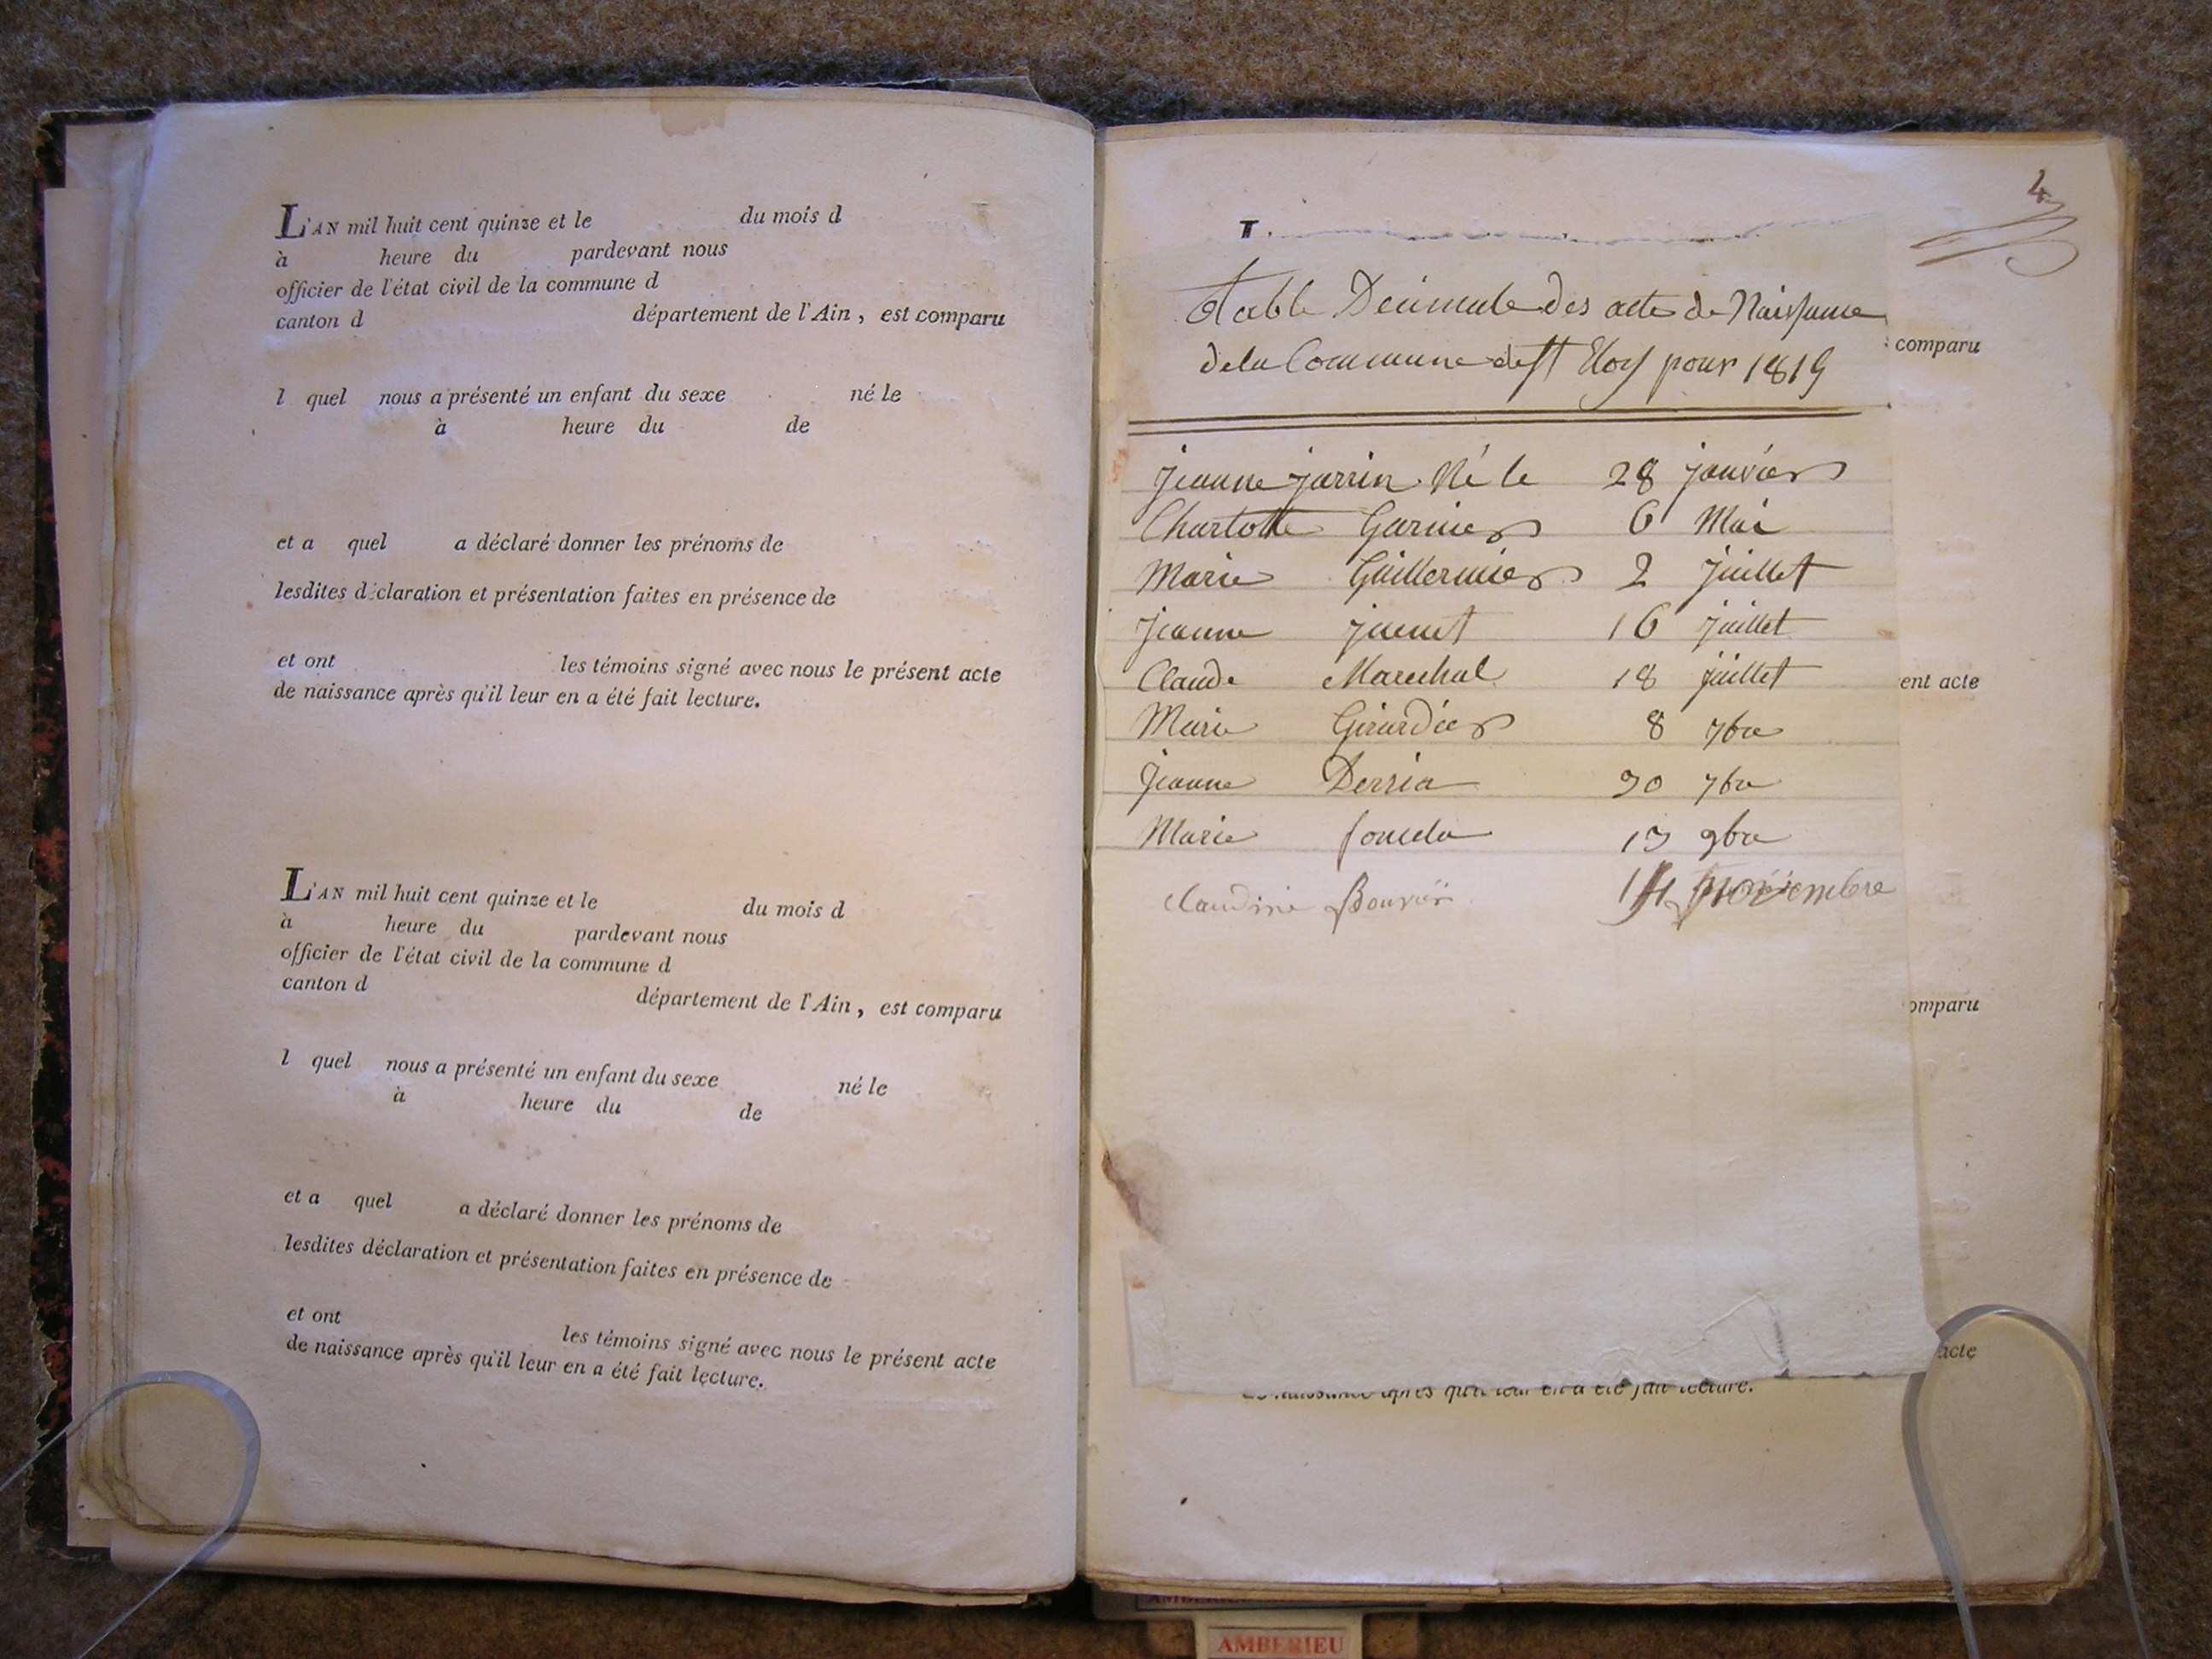 L'AN mil huit cent quinze et le du mois d
à heure du pardevant nous
officier de l'état civil de la commune d
canton d département de l'Ain, est comparu
l quel nous a présenté un enfant du sexe né le
à heure du de
et a quel a déclaré donner les prénoms de
lesdites déclaration et présentation faites en présence de
et ont les témoins signé avec nous le présent acte
de naissance après qu'il leur en a été fait lecture.
L'AN mil huit cent quinze et le du mois d
à heure du pardevant nous
officier de l'état civil de la commune d
canton d département de l'Ain, est comparu
l quel nous a présenté un enfant du sexe né le
à heure du de
et a quel a déclaré donner les prénoms de
lesdites déclaration et présentation faites en présence de
et ont les témoins signé avec nous le présent acte
de naissance après qu'il leur en a été fait lecture.
4
Table Decimale des acte de Naissance
de la Commune de St Eloy pour 1815
comparu
Jeanne jarrin Né le 28 janvier
Charlotte Garnier 6 Mai
Marie Guillermier 2 Juillet
Jeanne 16 juillet
Claude Marechal 18 juillet
ent acte
Marie Girardier 8 7bre
Jeanne Perrin 30 7bre
Marie 13 9bre
Claudine Bouvier 14 Novembre
omparu
acte
naissance après qu'il leur en a été fait lecture.
AMBERIEU
AMBERIEU